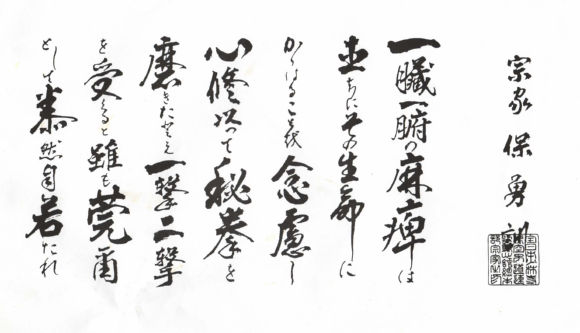 宗家 保勇訓
一臓一腑の麻痺は
直ちにその生命に
かゝはることを念慮し
心修以つて秘拳を
磨きたとえ一撃二撃
を受くると雖も莞爾
として泰然自若たれ